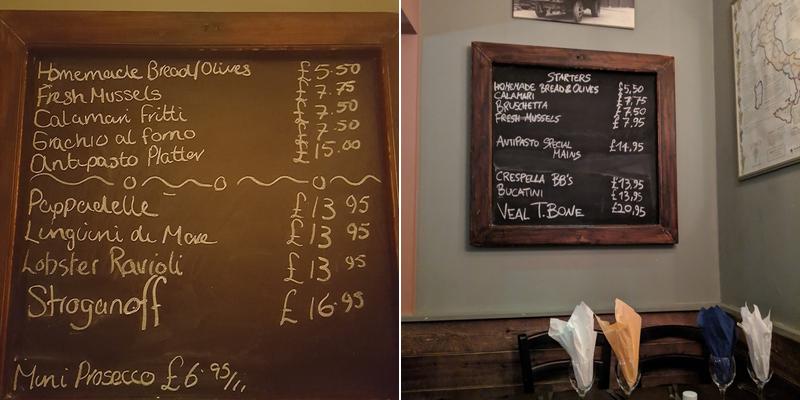 Homemade Bread/Olives £5.50
Fresh Mussels £7.75
Calamari Fritti £7.50
Grachio al forno £7.50
Antipasto Platter £15.00
Pappadelle £13 95
Linguini di Mare £13 95
Lobster Ravioli £13 95
Stroganoff £16.95
Mini Prosecco £6.95/,,
STARTERS
HOMEMADE BREAD & OLIVES £5,50
CALAMARI £7,75
BRUSCHETTA £7,50
FRESH MUSSELS £7,95
ANTIPASTO SPECIAL £14,95
MAINS
CRESPELLA BB'S £13,95
BUCATINI £13,95
VEAL T.BONE £20,95